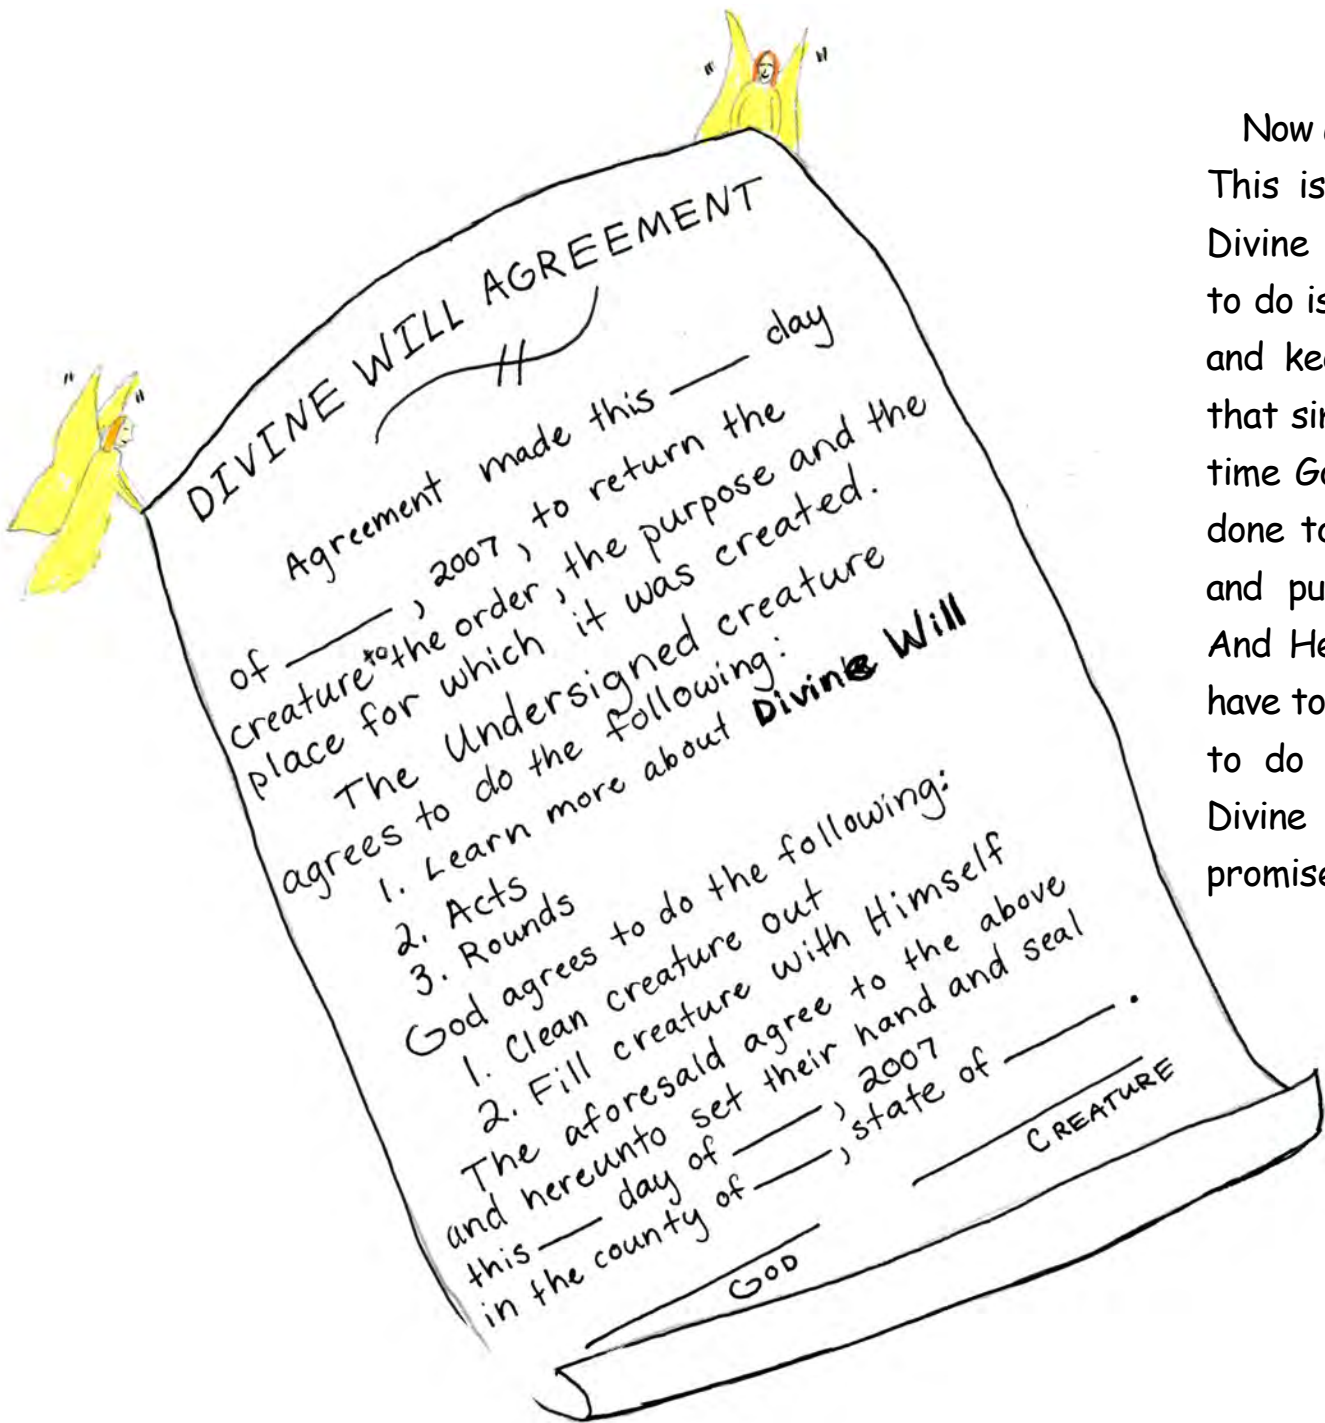 DIVINE WILL AGREEMENT
Agreement made this ____ day
of ____, 2007, to return the
creature to the order, the purpose and the
place for which it was created.
The Undersigned creature
agrees to do the following:
1. Learn more about Divine Will
2. Acts
3. Rounds
God agrees to do the following:
1. Clean creature out
2. Fill creature with Himself
The aforesaid agree to the above
and hereunto set their hand and seal
this ____ day of ____, 2007
in the county of ____, state of ____.
GOD
CREATURE
Now
This is
Divine
to do is
and kee
that sin
time Go
done to
and pu
And He
have to
to do
Divine
promise